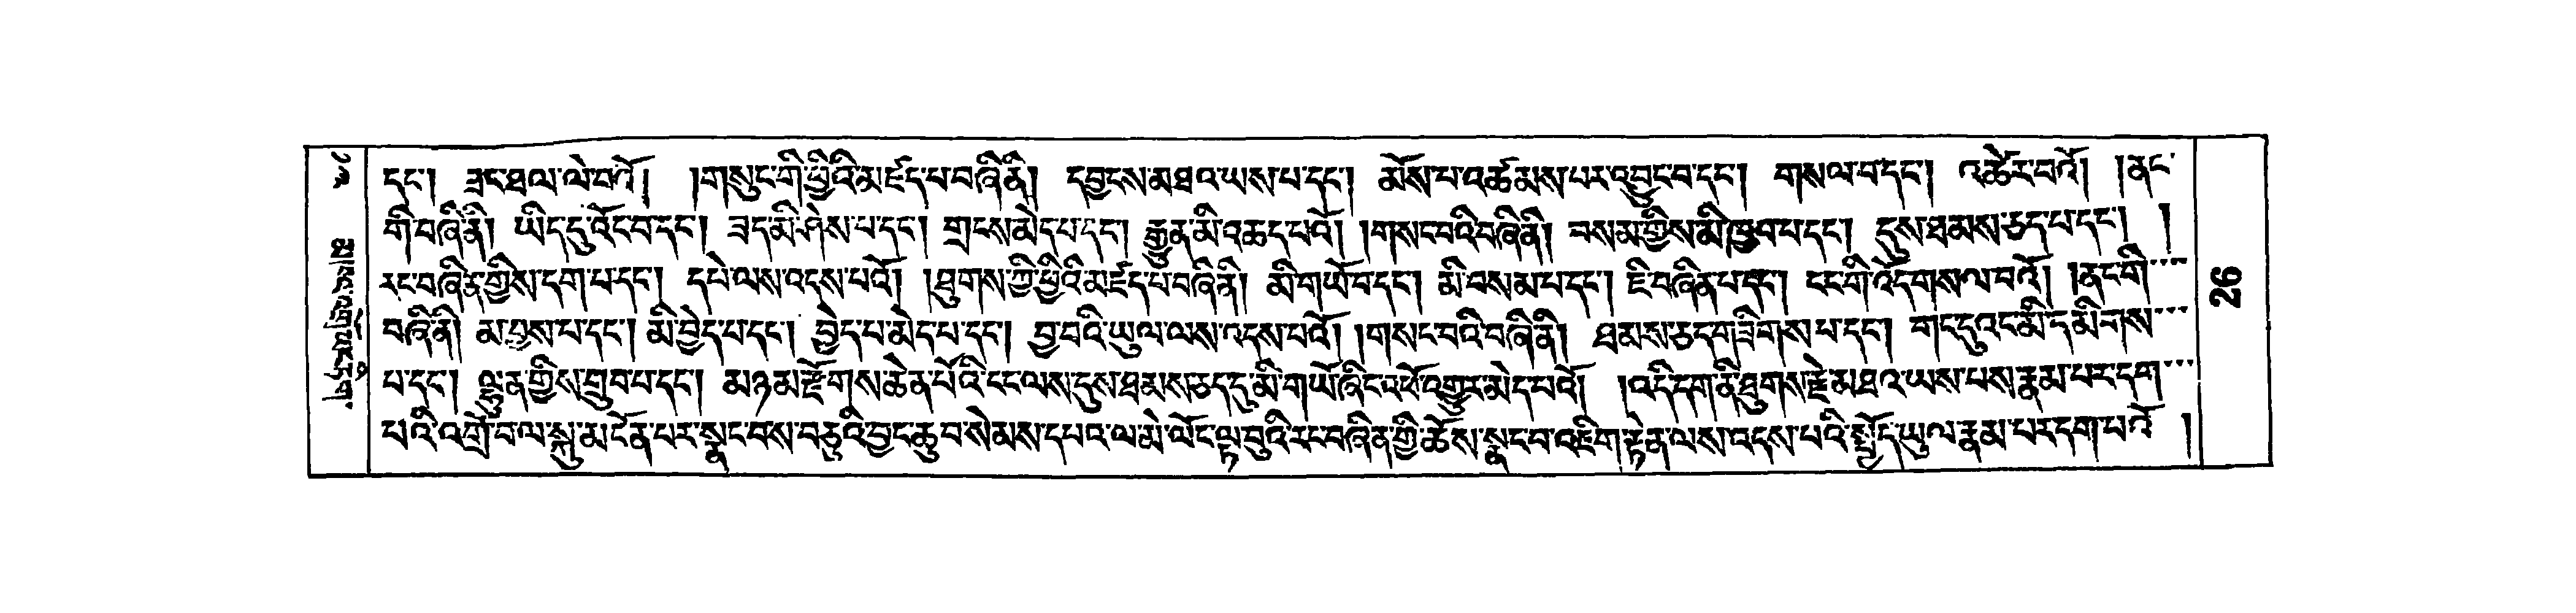 དང་། ཟང་ཐལ་ལེ་བའོ། །གསུང་གི་ཕྱིའི་མཛད་པ་བཞི་ནི། དབྱངས་མཐའ་ཡས་པ་དང་། མོས་པ་འཚམས་པར་འབྱུང་བ་དང་། གསལ་བ་དང་། འཚེར་བའོ། །ནང་
གི་བཞི་ནི། ཡིད་དུ་འོང་བ་དང་། ཟད་མི་ཤེས་པ་དང་། གྲངས་མེད་པ་དང་། རྒྱུན་མི་འཆད་པའོ། །གསང་བའི་བཞི་ནི། བསམ་གྱིས་མི་ཁྱབ་པ་དང་། དུས་ཐམས་ཅད་པ་དང་། །
རང་བཞིན་གྱིས་དག་པ་དང་། དཔེ་ལས་འདས་པའོ། །ཐུགས་ཀྱི་ཕྱིའི་མཛད་པ་བཞི་ནི། མི་གཡོ་བ་དང་། མི་བསམ་པ་དང་། ཇི་བཞིན་པ་དང་། ངང་གི་འོད་གསལ་བའོ། །ནང་གི་
བཞི་ནི། མ་བྱས་པ་དང་། མི་བྱེད་པ་དང་། བྱེད་པ་མེད་པ་དང་། བྱ་བའི་ཡུལ་ལས་འདས་པའོ། །གསང་བའི་བཞི་ནི། ཐམས་ཅད་གཟིགས་པ་དང་། གང་དུའང་མི་དམིགས་
པ་དང་། ལྷུན་གྱིས་གྲུབ་པ་དང་། མཉམ་རྫོགས་ཆེན་པོའི་ངང་ལས་དུས་ཐམས་ཅད་དུ་མི་གཡོ་ཞིང་འཕོ་འགྱུར་མེད་པའོ། །འདི་དག་ནི་ཐུགས་རྗེ་མཐའ་ཡས་པས་རྣམ་པར་དག་
པའི་འགྲོ་བ་ལ་སྐུ་མངོན་པར་སྣང་བས་བཅུའི་བྱང་ཆུབ་སེམས་དཔའ་ལ་མེ་ལོང་ལྟ་བུའི་རང་བཞིན་གྱི་ཆོས་སྣང་བ་འཇིག་རྟེན་ལས་འདས་པའི་སྤྱོད་ཡུལ་རྣམ་པར་དག་པའོ །